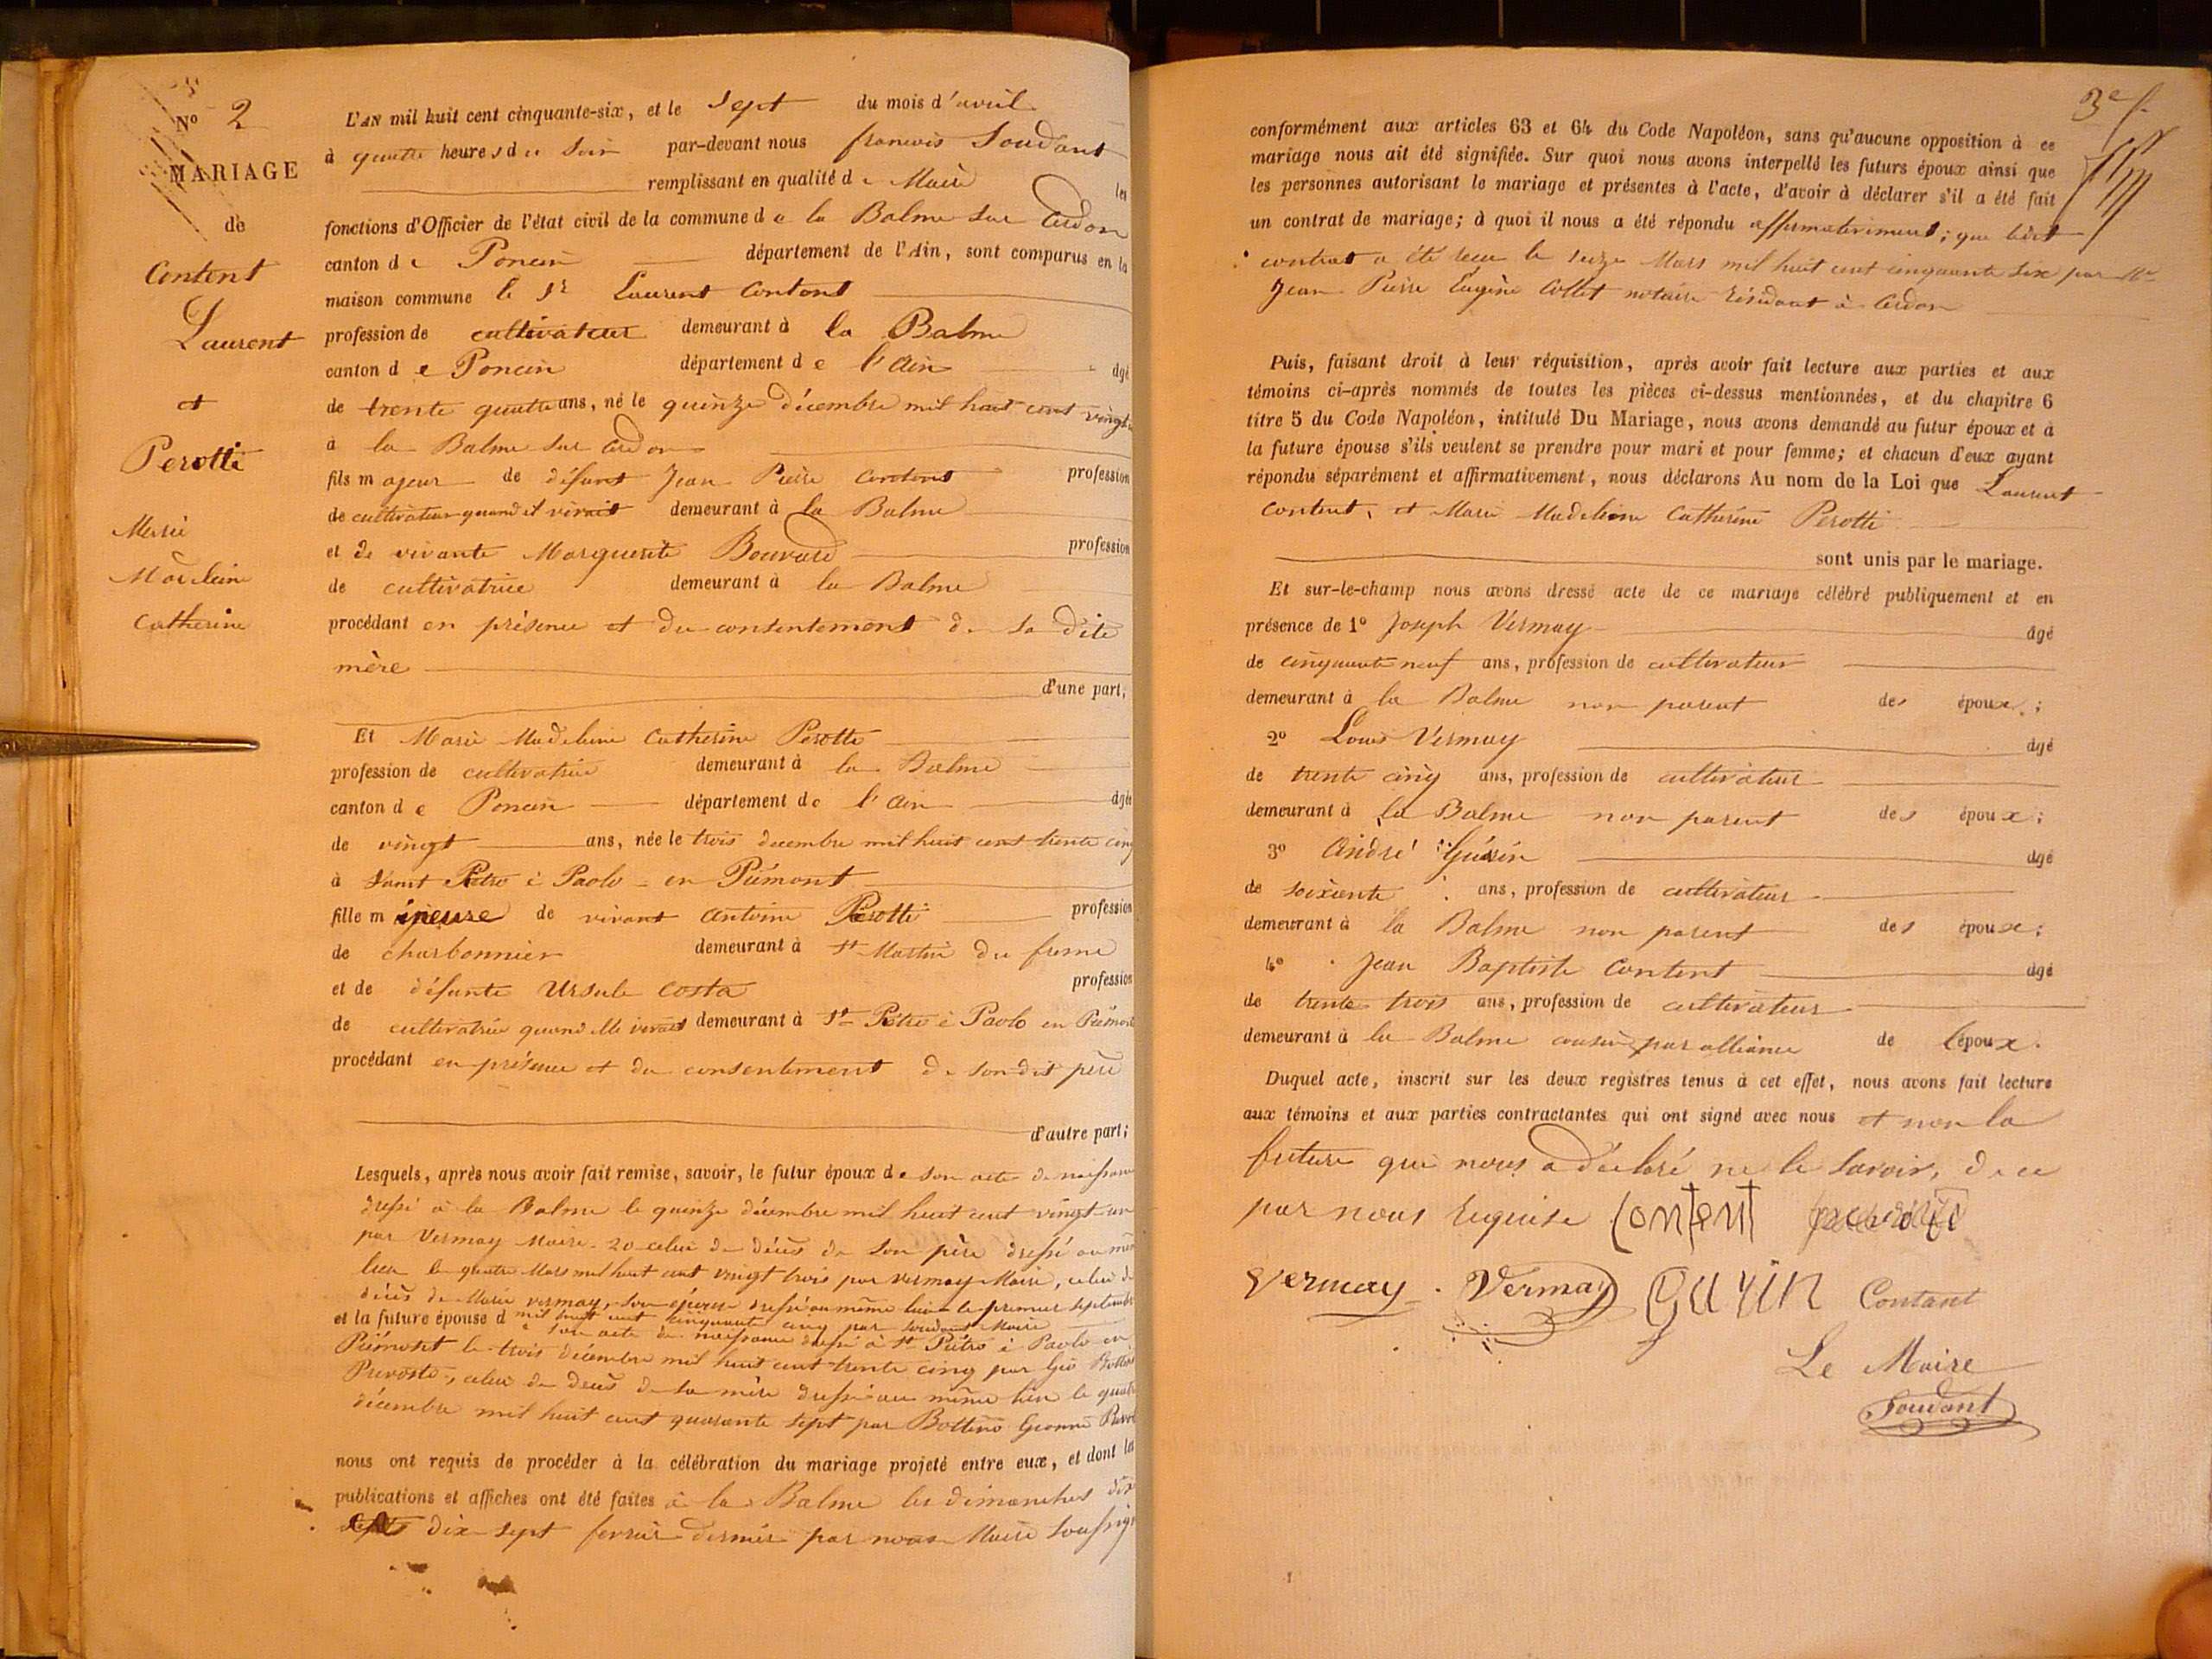 N° 2
MARIAGE
de
Content
Laurent
et
Perotti
Marie
Madeleine
Catherine
L'AN mil huit cent cinquante-six, et le sept du mois d'avril
à quatre heures du soir par-devant nous francois Soudant
remplissant en qualité de Maire les
fonctions d'Officier de l'état civil de la commune de la Balme sur Cerdon
canton de Poncin département de l'Ain, sont comparus en la
maison commune le Sr Laurent Content
profession de cultivateur demeurant à la Balme
canton de Poncin département de l'Ain âgé
de trente quatre ans, né le quinze décembre mil huit cent vingt
à la Balme sur Cerdon
fils majeur de défunt Jean Pierre Content profession
de cultivateur quand il vivait demeurant à la Balme
et de vivante Marguerite Bouvard profession
de cultivatrice demeurant à la Balme
procédant en présence et du consentement de sa dite
mère
d'une part;
Et Marie Madeleine Catherine Perotti
profession de cultivatrice demeurant à la Balme
canton de Poncin département de l'Ain âgée
de vingt ans, née le trois decembre mil huit cent trente cinq
à Saint Pietro è Paolo en Piémont
fille mineure de vivant Antoine Perotti profession
de charbonnier demeurant à St Martin du fresne
et de défunte Ursule Costa profession
de cultivatrice quand elle vivait demeurant à St Pietro è Paolo en Piémont
procédant en présence et du consentement de son dit père
d'autre part;
Lesquels, après nous avoir fait remise, savoir, le futur époux de son acte de naissance
dressé à la Balme le quinze décembre mil huit cent vingt un
par Vermay Maire. 2o celui de décès de son père dressé au même
lieu le quatre Mars mil huit cent vingt trois par Vermay Maire, celui de
décès de Marie Vermay, son épouse dressé au même lieu le premier septembre
mil huit cent cinquante cinq par Soudant Maire
et la future épouse de son acte de naissance dressé à St Pietro è Paolo en
Piémont le trois décembre mil huit cent trente cinq par Gio Bottino
Prevosto, celui de decès de sa mère dressé au même lieu le quatre
décembre mil huit cent quarante sept par Bottino
nous ont requis de procéder à la célébration du mariage projeté entre eux, et dont les
publications et affiches ont été faites à la Balme les dimanches dix
dix-sept fevrier dernier par nous Maire soussigné
3e f.
conformément aux articles 63 et 64 du Code Napoléon, sans qu'aucune opposition à ce
mariage nous ait été signifiée. Sur quoi nous avons interpellé les futurs époux ainsi que
les personnes autorisant le mariage et présentes à l'acte, d'avoir à déclarer s'il a été fait
un contrat de mariage; à quoi il nous a été répondu affirmativement; que ledit
contrat a été recu le seize Mars mil huit cent cinquante six par Me
Jean Pierre Eugène Collet notaire résidant à Cerdon
Puis, faisant droit à leur réquisition, après avoir fait lecture aux parties et aux
témoins ci-après nommés de toutes les pièces ci-dessus mentionnées, et du chapitre 6
titre 5 du Code Napoléon, intitulé Du Mariage, nous avons demandé au futur époux et à
la future épouse s'ils veulent se prendre pour mari et pour femme; et chacun d'eux ayant
répondu séparément et affirmativement, nous déclarons Au nom de la Loi que Laurent
Content, et Marie Madeleine Catherine Perotti
sont unis par le mariage.
Et sur-le-champ nous avons dressé acte de ce mariage célébré publiquement et en
présence de 1° Joseph Vermay âgé
de cinquante neuf ans, profession de cultivateur
demeurant à la Balme non parent des époux;
2° Louis Vermay âgé
de trente cinq ans, profession de cultivateur
demeurant à la Balme non parent des époux;
3° André Guérin âgé
de soixante ans, profession de cultivateur
demeurant à la Balme non parent des époux;
4° Jean Baptiste Content âgé
de trente trois ans, profession de cultivateur
demeurant à la Balme cousin par alliance de l'époux.
Duquel acte, inscrit sur les deux registres tenus à cet effet, nous avons fait lecture
aux témoins et aux parties contractantes qui ont signé avec nous et non la
future qui nous a déclaré ne le savoir, de ce
par nous requise Content
Vermay. Vermay Guerin Contant
Le Maire
Soudant